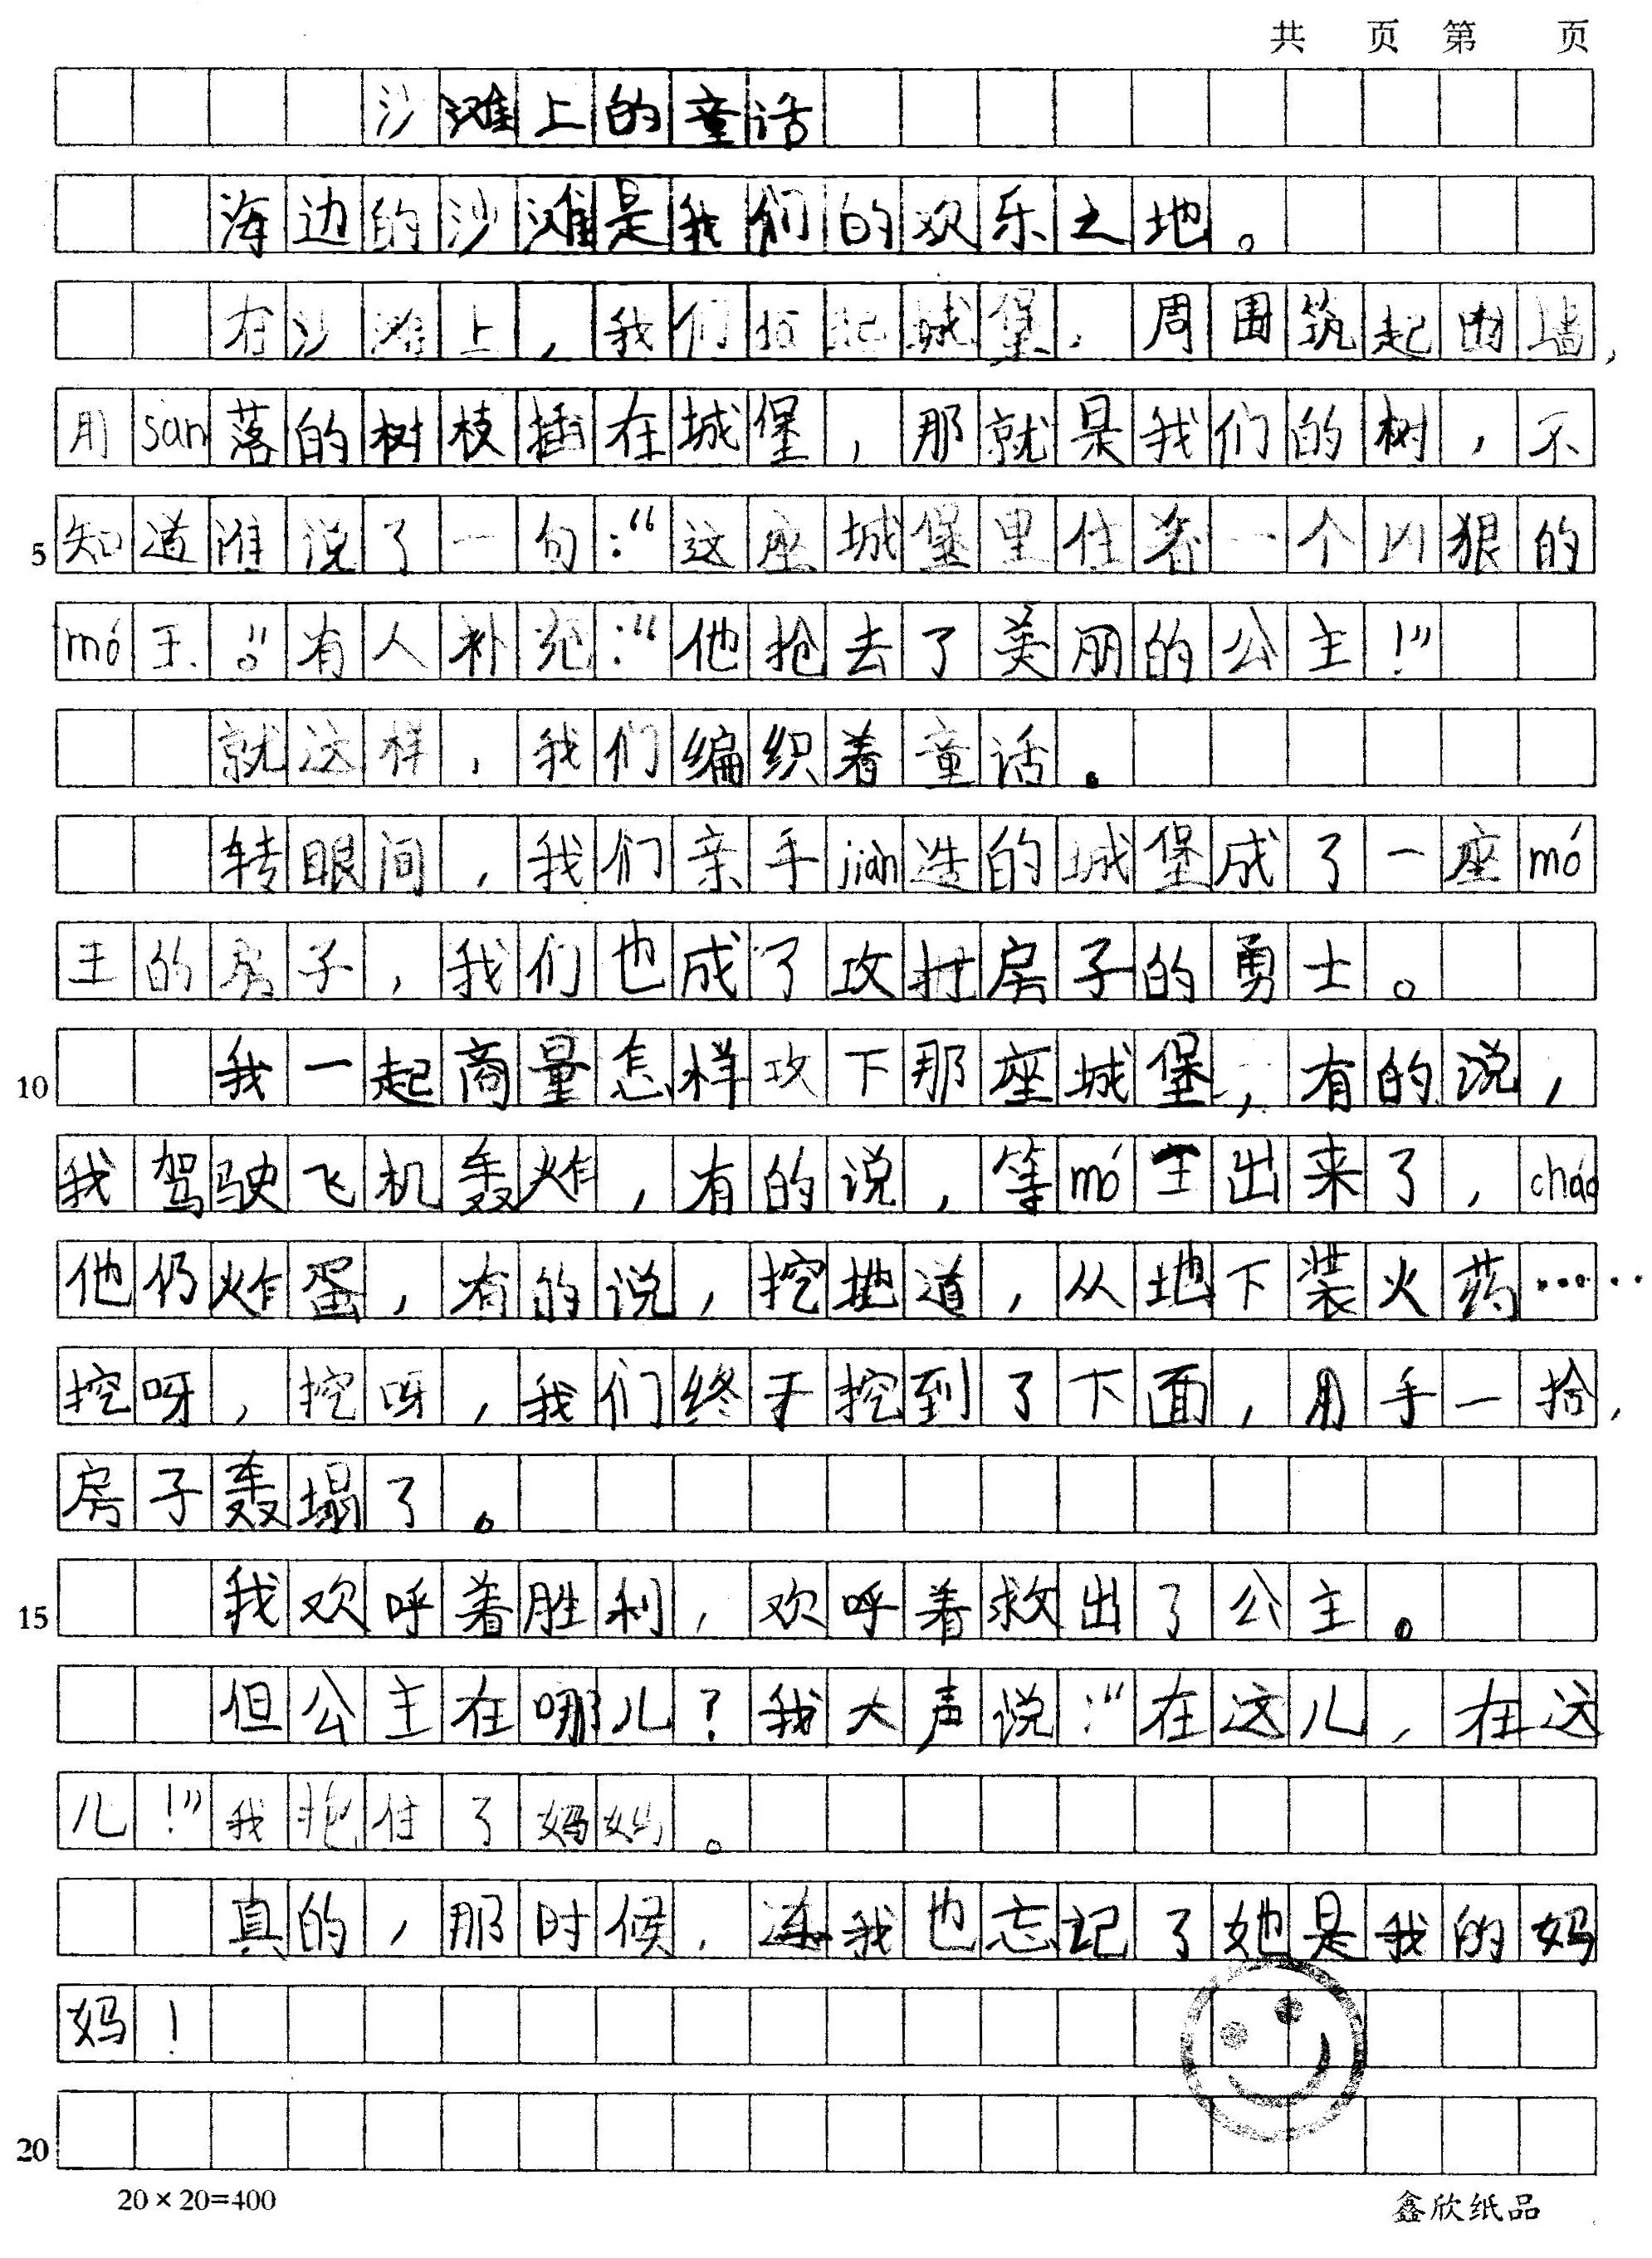 共 页 第 页
沙滩上的童话
海边的沙滩是我们的欢乐之地。
在沙滩上，我们 起城堡，周围筑起围墙，
用san落的树枝插在城堡，那就是我们的树，不
5 知道谁说了一句：“这座城堡里住着一个凶狠的
mó王。”有人补充：“他抢去了美丽的公主！”
就这样，我们编织着童话。
转眼间，我们亲手jiàn造的城堡成了一座mó
王的房子，我们也成了攻打房子的勇士。
10 我一起商量怎样攻下那座城堡，有的说，
我驾驶飞机轰炸，有的说，等mó王出来了，cháo
他扔炸蛋，有的说，挖地道，从地下装火药……
挖呀，挖呀，我们终于挖到了下面，用手一抬，
房子轰塌了。
15 我欢呼着胜利，欢呼着救出了公主。
但公主在哪儿？我大声说：“在这儿，在这
儿！”我抱住了妈妈。
真的，那时候，连我也忘记了她是我的妈
妈！
20
20×20=400 鑫欣纸品